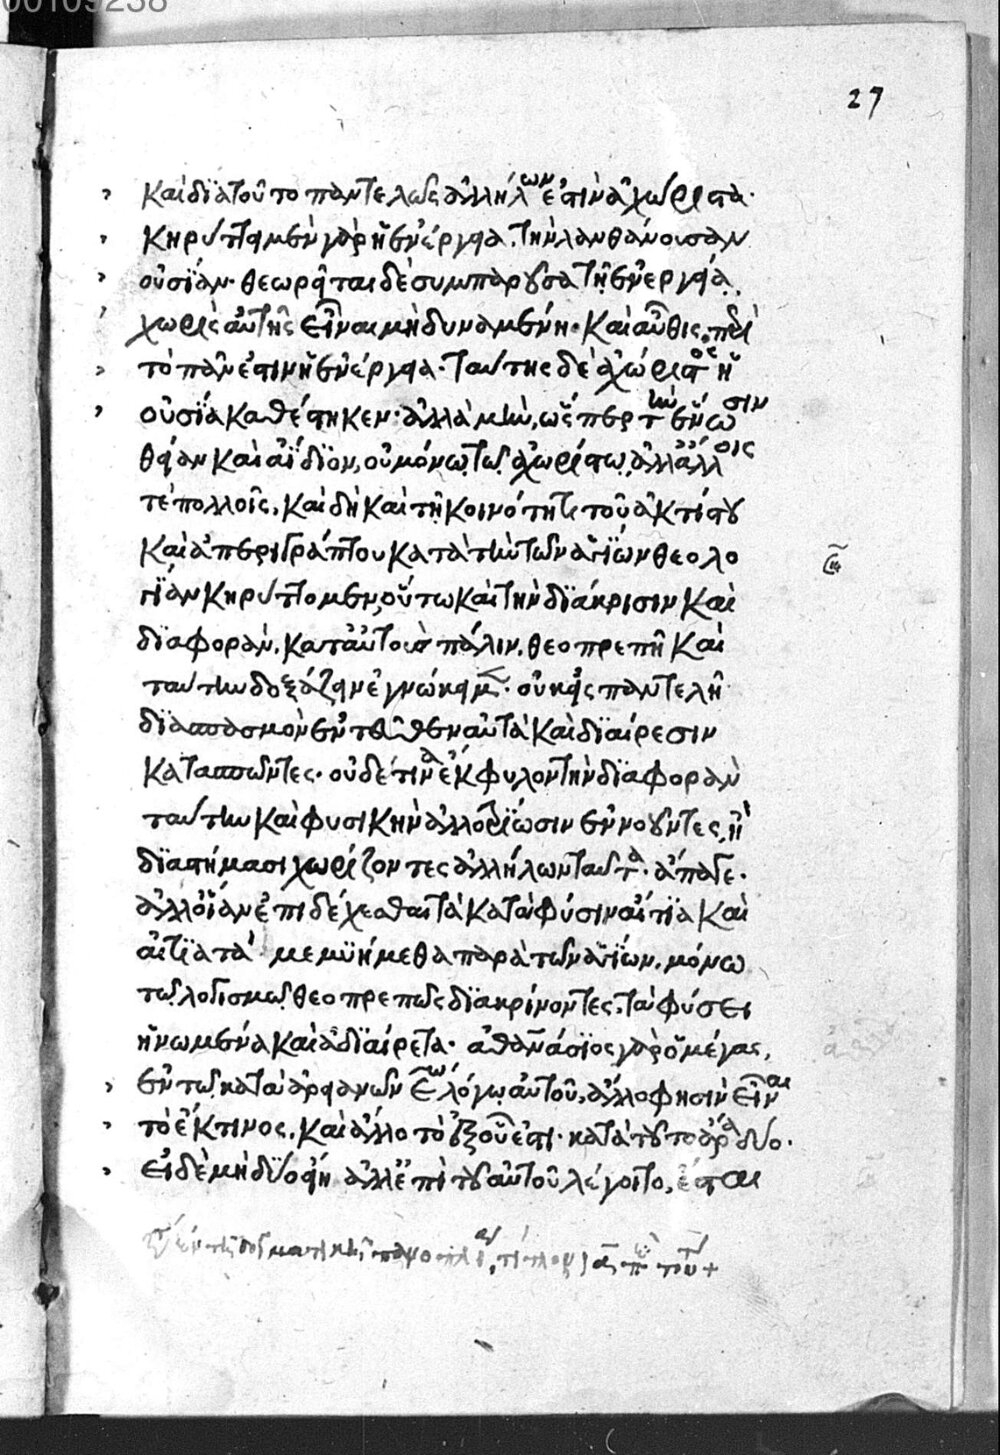 00109238
27
καὶ διὰ τοῦτο παντελῶς ἀλλήλων ἐστὶν ἀχώριστα·
κηρύττει μὲν γὰρ ἡ ἐνέργεια, τὴν λανθάνουσαν
οὐσίαν· θεωρεῖται δὲ συμπαροῦσα τῇ ἐνεργείᾳ,
χωρὶς αὐτῆς εἶναι μὴ δυναμένη· καὶ αὖθις,
τὸ πᾶν ἐστιν ἡ ἐνέργεια· ταύτης δὲ ἀχώριστος ἡ
οὐσία καθέστηκεν· ἀλλὰ μὴν, ὥσπερ τὴν ἕνωσιν
θείαν καὶ ἀΐδιον, οὐ μόνῳ τῷ ἀχωρίστῳ, ἀλλ' ἄλλοις
τὲ πολλοῖς, καὶ δὴ καὶ τῇ κοινότητι τοῦ ἀκτίστου
καὶ ἀπεριγράπτου κατὰ τὴν τῶν ἁγίων θεολο
γίαν κηρύττομεν, οὕτω καὶ τὴν διάκρισιν καὶ
διαφορὰν, κατ' αὐτοὺς πάλιν, θεοπρεπῆ καὶ
ταύτην δοξάζειν ἐγνώκαμεν· οὐκ εἰς παντελῆ
διασπασμὸν ἐντεῦθεν αὐτὰ καὶ διαίρεσιν
κατασπῶντες· οὐδέ τινα ἔκφυλον τὴν διαφορὰν
ταύτην καὶ φυσικὴν ἀλλοτρίωσιν ἐννοοῦντες, ἢ
διαστήμασι χωρίζοντες ἀλλήλων ταῦτα· ἄπαγε·
ἀλλ' οἵαν ἐπιδέχεσθαι τὰ κατὰ φύσιν αἴτια καὶ
αἰτιατὰ μεμυήμεθα παρὰ τῶν ἁγίων, μόνῳ
τῷ λογισμῷ θεοπρεπῶς διακρίνοντες, τὰ φύσει
ἡνωμένα καὶ ἀδιαίρετα· ἀθανάσιος γὰρ ὁ μέγας,
ἐν τῷ κατὰ ἀρειανῶν λόγῳ αὐτοῦ, ἄλλο φησὶν εἶναι
τὸ ἔκ τινος, καὶ ἄλλο τὸ ἐξ οὗ ἐστι· κατὰ τοῦτο ἄρα δύο·
εἰ δὲ μὴ δύο εἴη ἀλλ' ἐπὶ τοῦ αὐτοῦ λέγοιτο, ἔσται